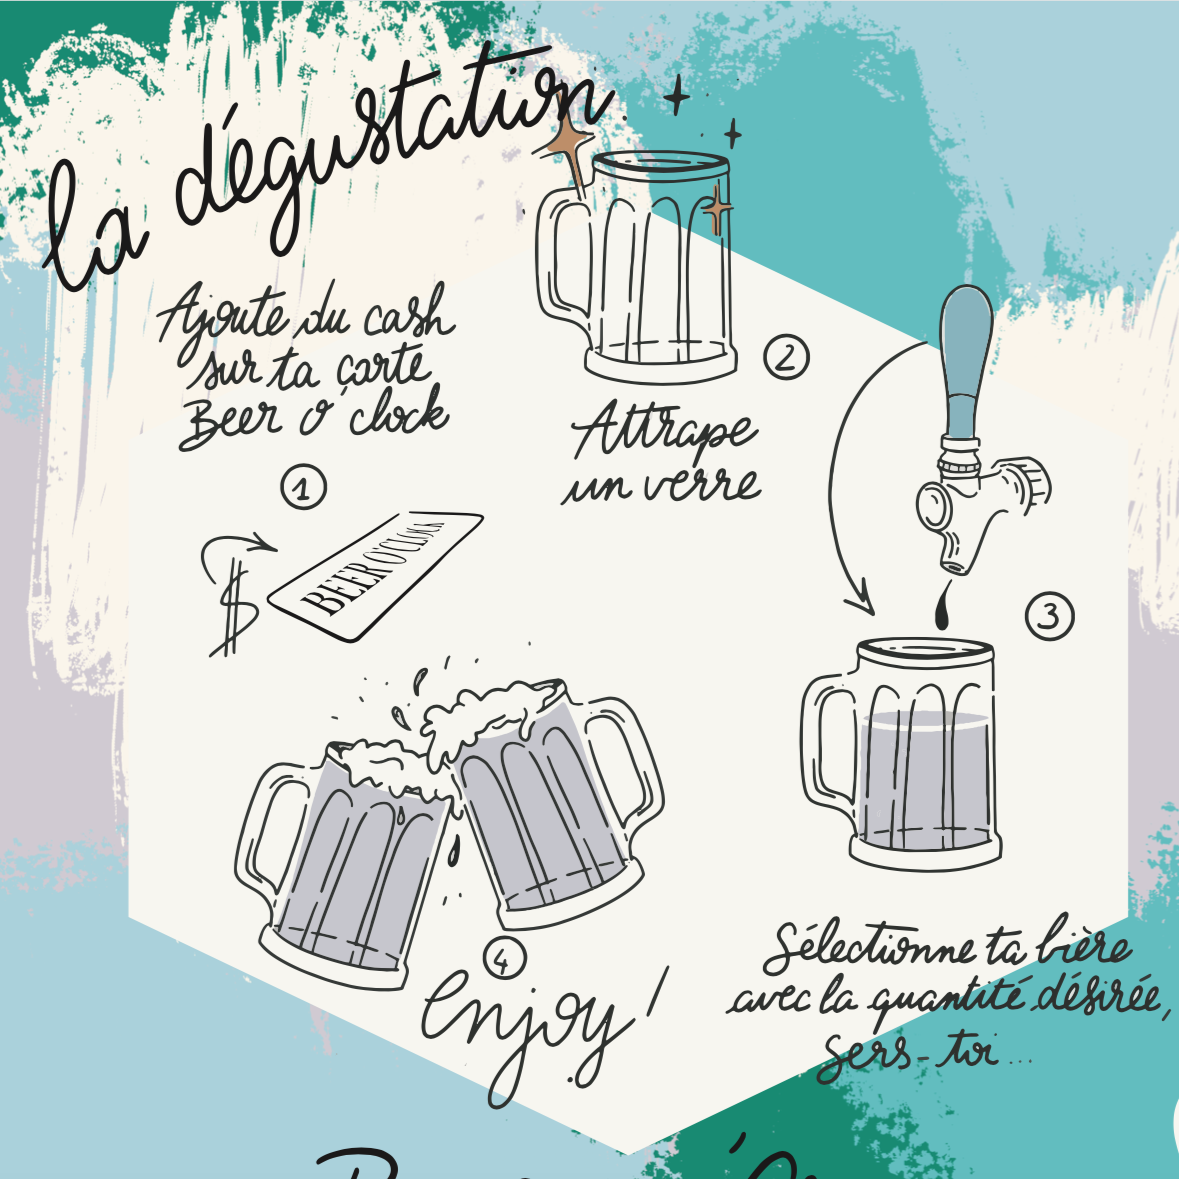 la dégustation
Ajoute du cash
sur ta carte
Beer O'clock
1
$
BEER O'CLOCK
2
Attrape
un verre
3
Sélectionne ta bière
avec la quantité désirée,
sers-toi...
4
enjoy!